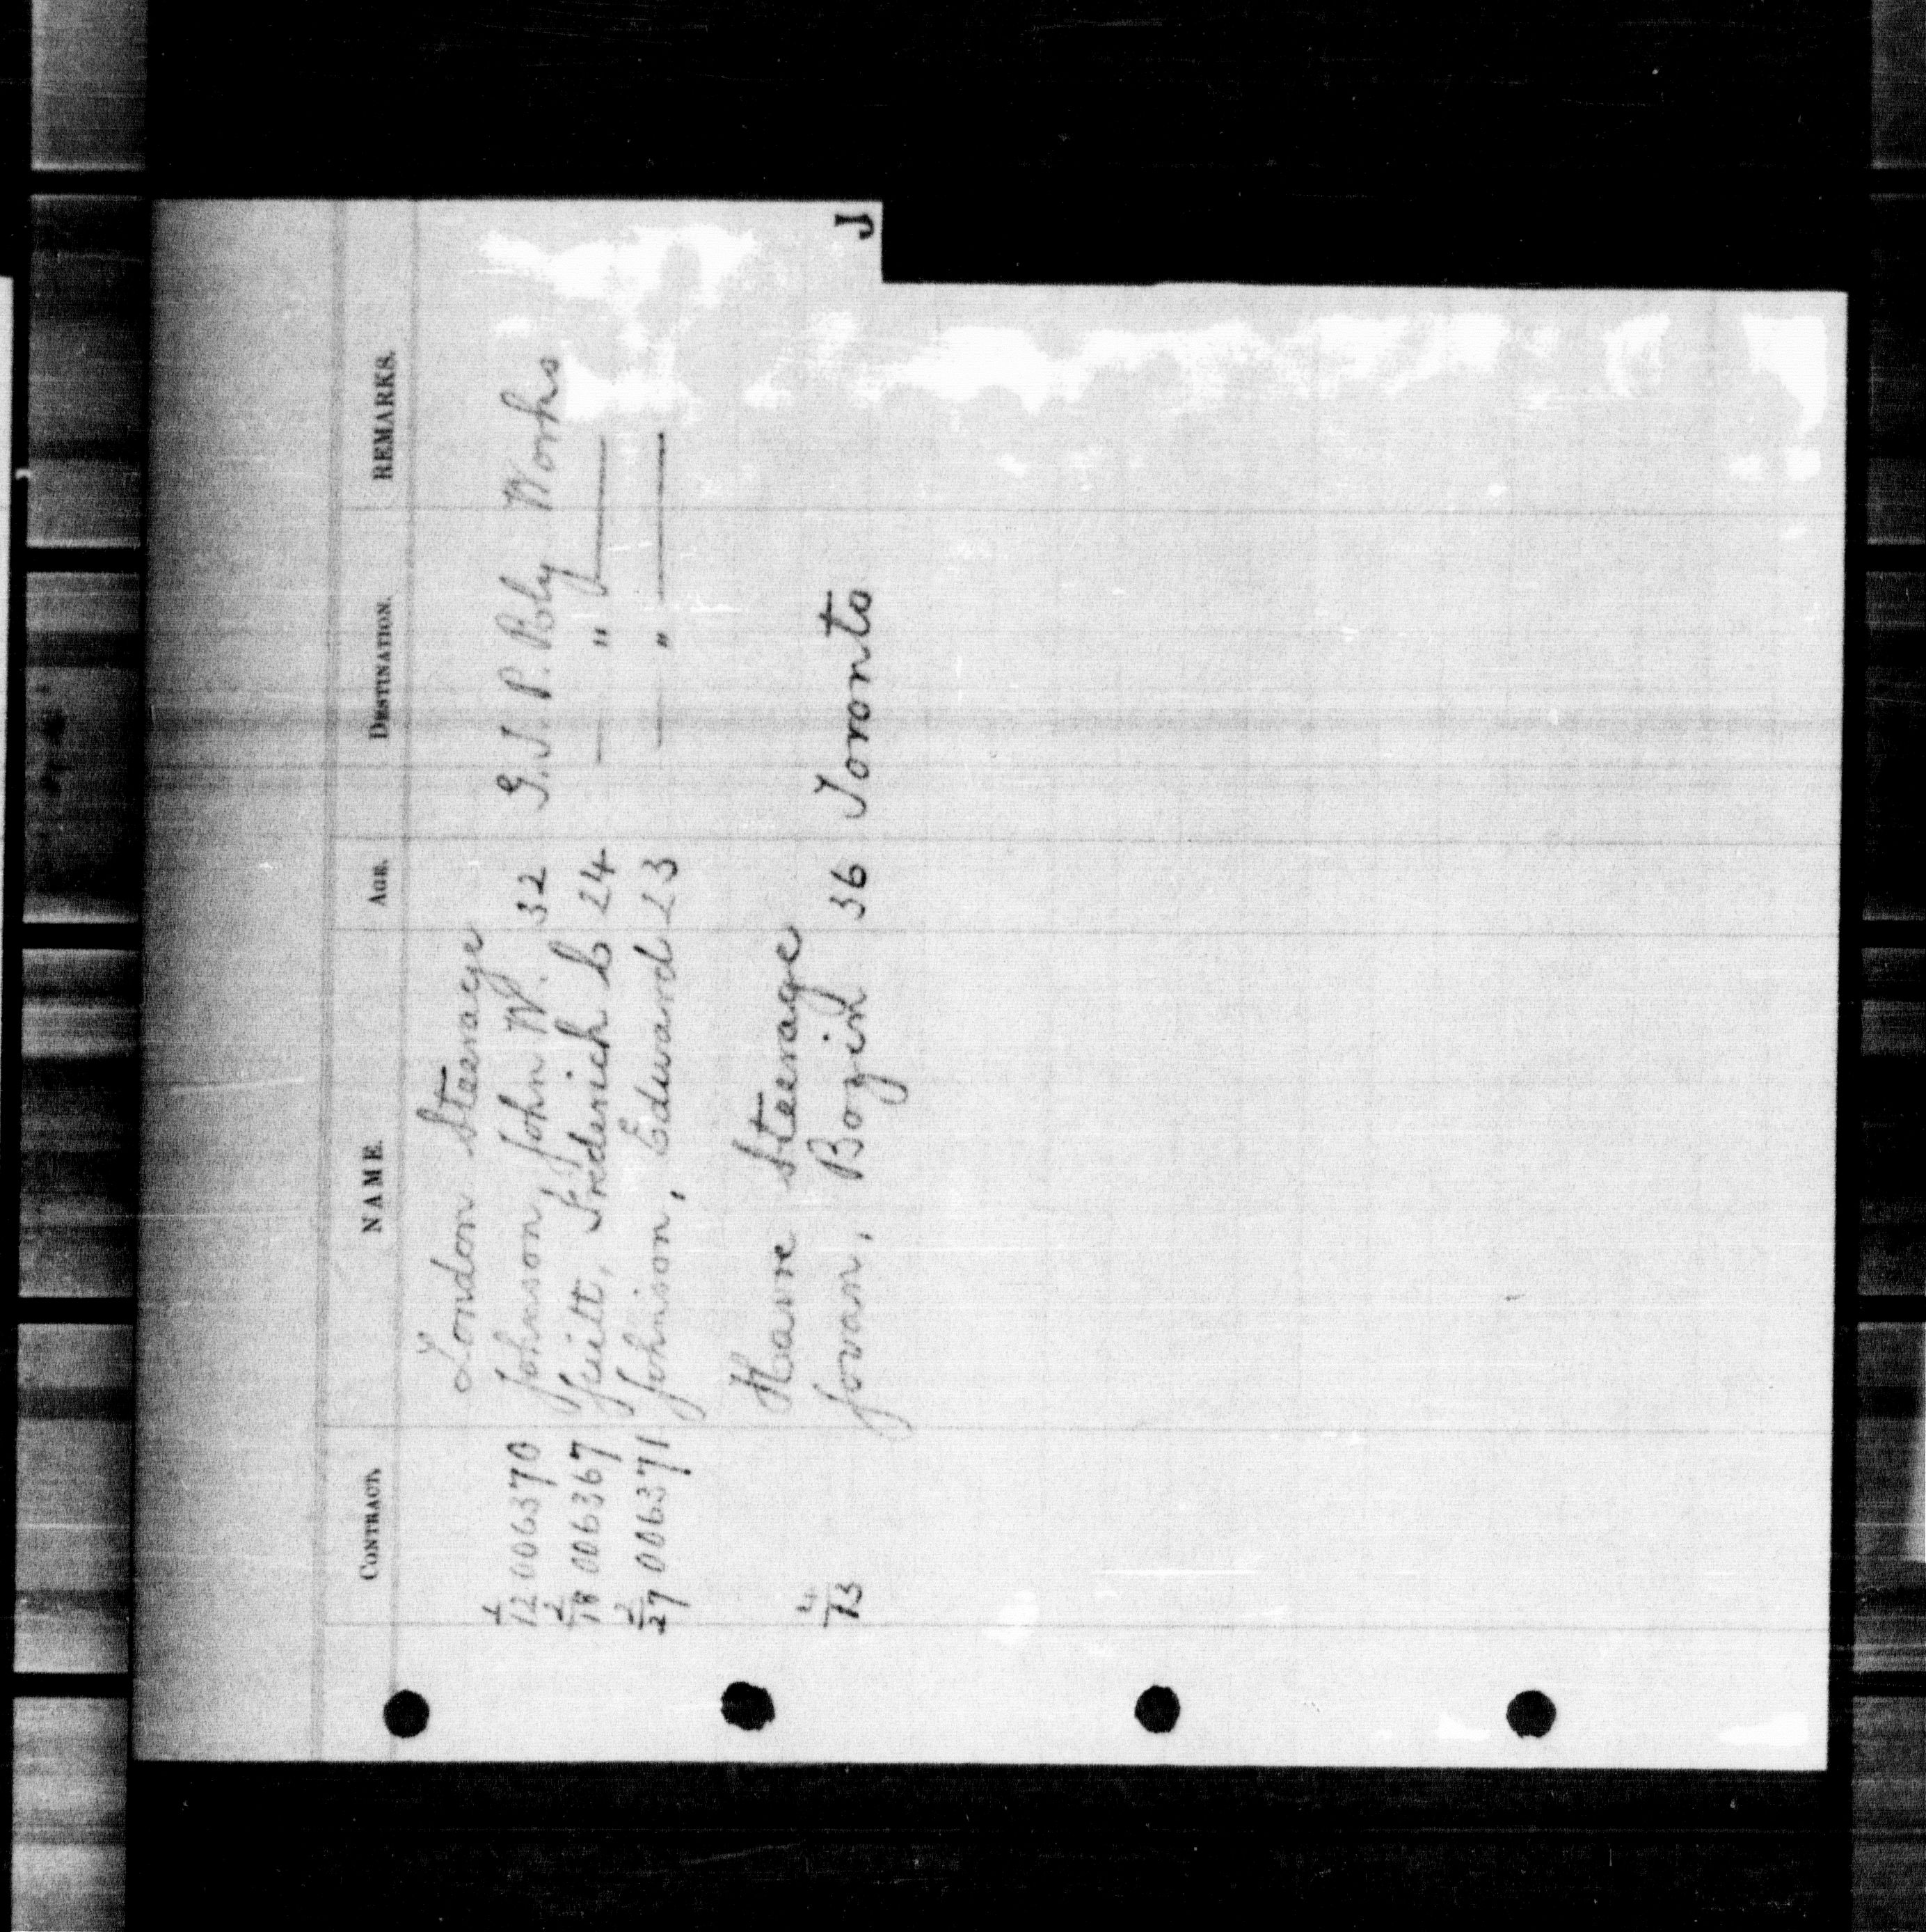 J
CONTRACT. NAME. AGE. DESTINATION. REMARKS.
London Steerage
1/12 006370 Johnson, John W. 32 G.T.P. Rly Works
2/18 006367 Jeilt, Frederick C 24 — " —
2/27 006371 Johnson, Edward 23 — " —
Havre Steerage
4/13 Jovan, Bozin 36 Toronto